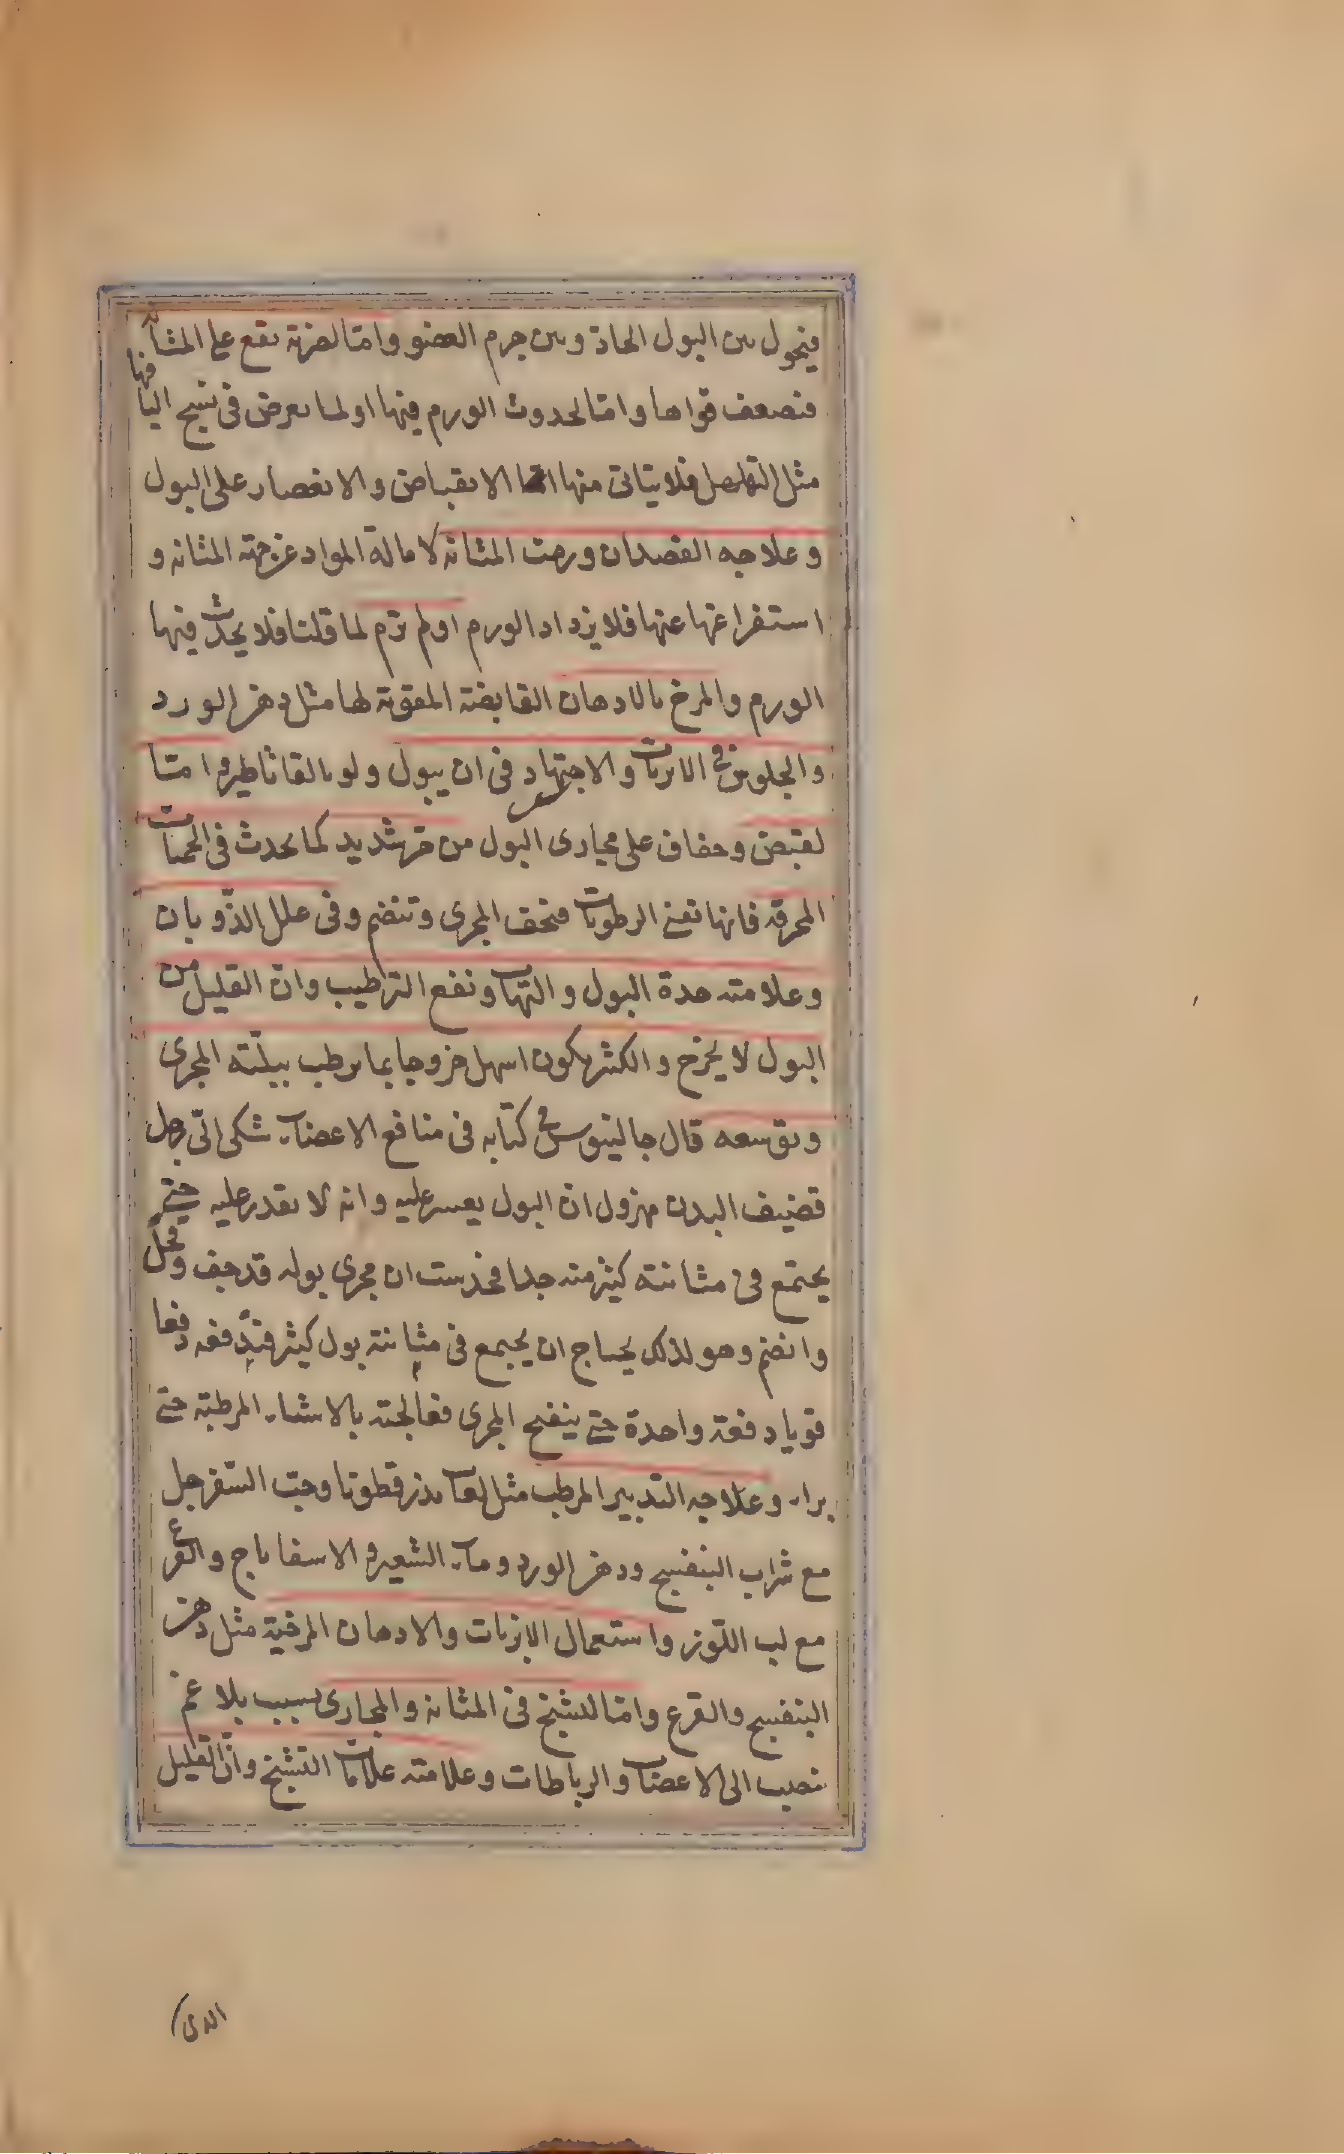 فيحول بين البول الحاد وبين جرم العضو واما لضربة تقع على المثانة
فتضعف قواها واما لحدوث الورم فيها او لما يعرض في نسج اليافها
مثل التهلهل فلا يتاتى منها الانقباض والانعصار على البول
وعلاجه الفصد ان ورمت المثانة لامالة المواد عن جهة المثانه و
استفراغها عنها فلا يزداد الورم او لم ترم لما قلنا فلا يحدث فيها
الورم والمرخ بالادهان القابضة المقوية لها مثل دهن الورد
والجلوس في الابزنات والاجتهاد في ان يبول ولو بالقاثاطير واما
لقبض وجفاف على مجارى البول من حر شديد كما يحدث في الحميات
المحرقه فانها تفنى الرطوبات فتجف المجرى وتنضم وفى علل الذوبان
وعلامته حدة البول والتهاب ونفع الترطيب وان القليل من
البول لا يخرج والكثير يكون اسهل خروجا بما يرطب ببلته المجرى
وتوسعه قال جالينوس في كتابه فى منافع الاعضاء شكى الىّ رجل
قضيف البدن مهزول ان البول يعسر عليه وانه لا يقدر عليه حتى
يجتمع في مثانته كثير منه جدا فحدست ان مجرى بوله قد جف وقحل
وانضم وهو لذلك يحتاج ان يجتمع فى مثانته بول كثير فيدفعه دفعا
قويا دفعة واحدة حتى ينفتح المجرى فعالجته بالاشياء المرطبة حتى
براء وعلاجه التدبير المرطب مثل لعاب بذر قطونا وحب السفرجل
مع شراب البنفسج ودهن الورد وماء الشعير والاسفاناج والقرع
مع لب اللوز واستعمال الابزنات والادهان المرخية مثل دهن
البنفسج والقرع واما لتشنج فى المثانه والمجارى بسبب بلاغم
تنصب الى الاعصاب والرباطات وعلامته علامات التشنج وان القليل
الذى